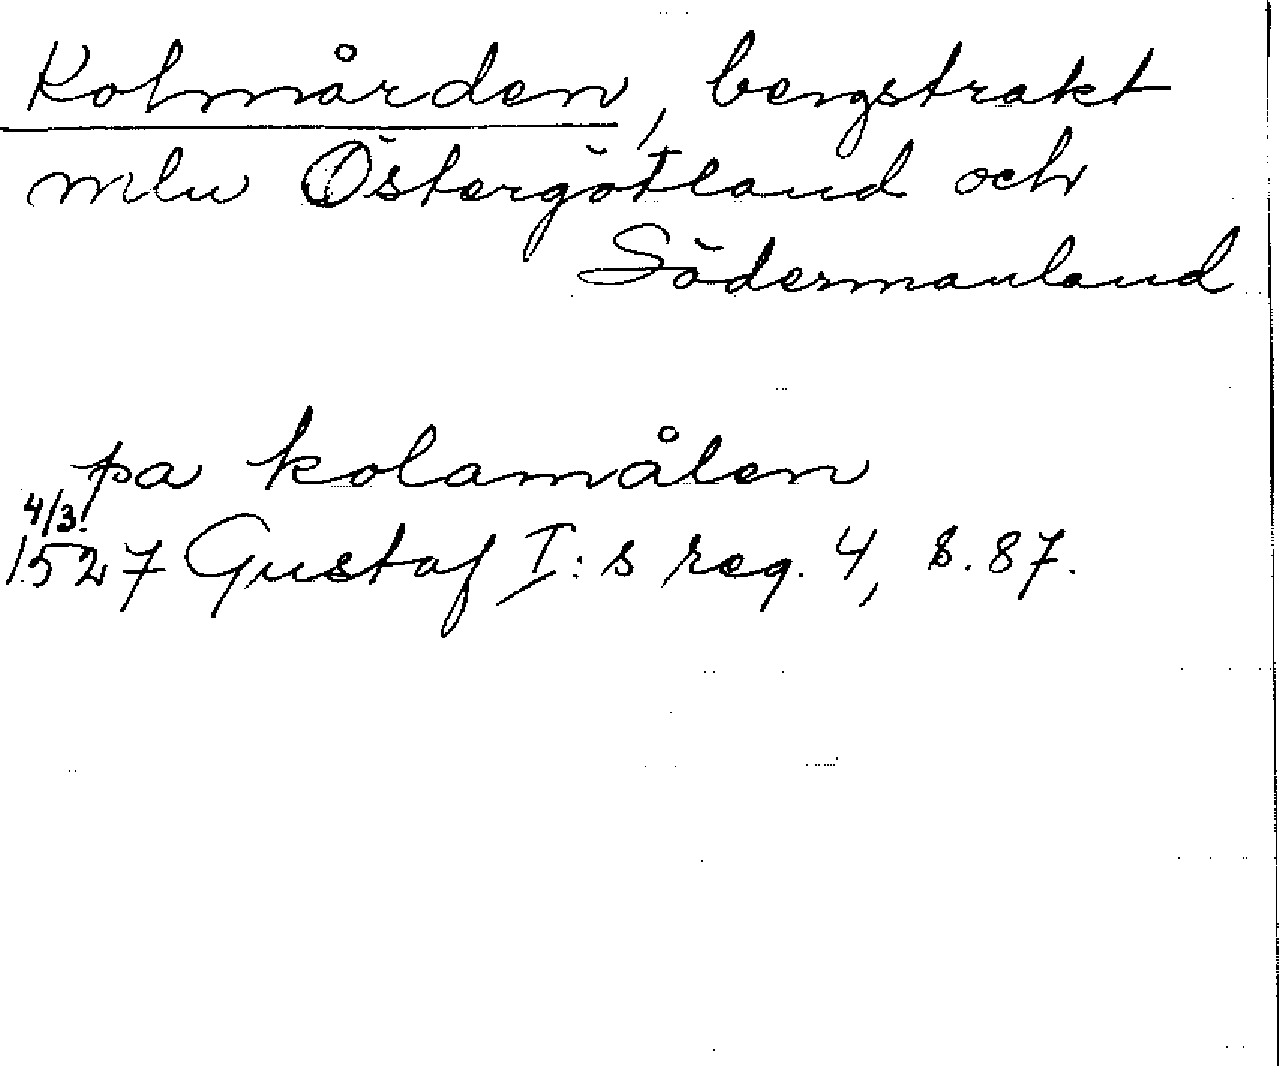 Kolmården, bergstrakt
mlu Östergötland och
Södermanland
pa kolamålen
4/3
1527 Gustaf I:s reg. 4, s. 87.